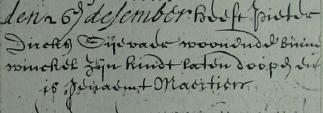 den 26 desember heeft Pieter
Dircks Sijevaer woonende binne
winckel zijn kindt laten doopen en
is genaemt Maertien